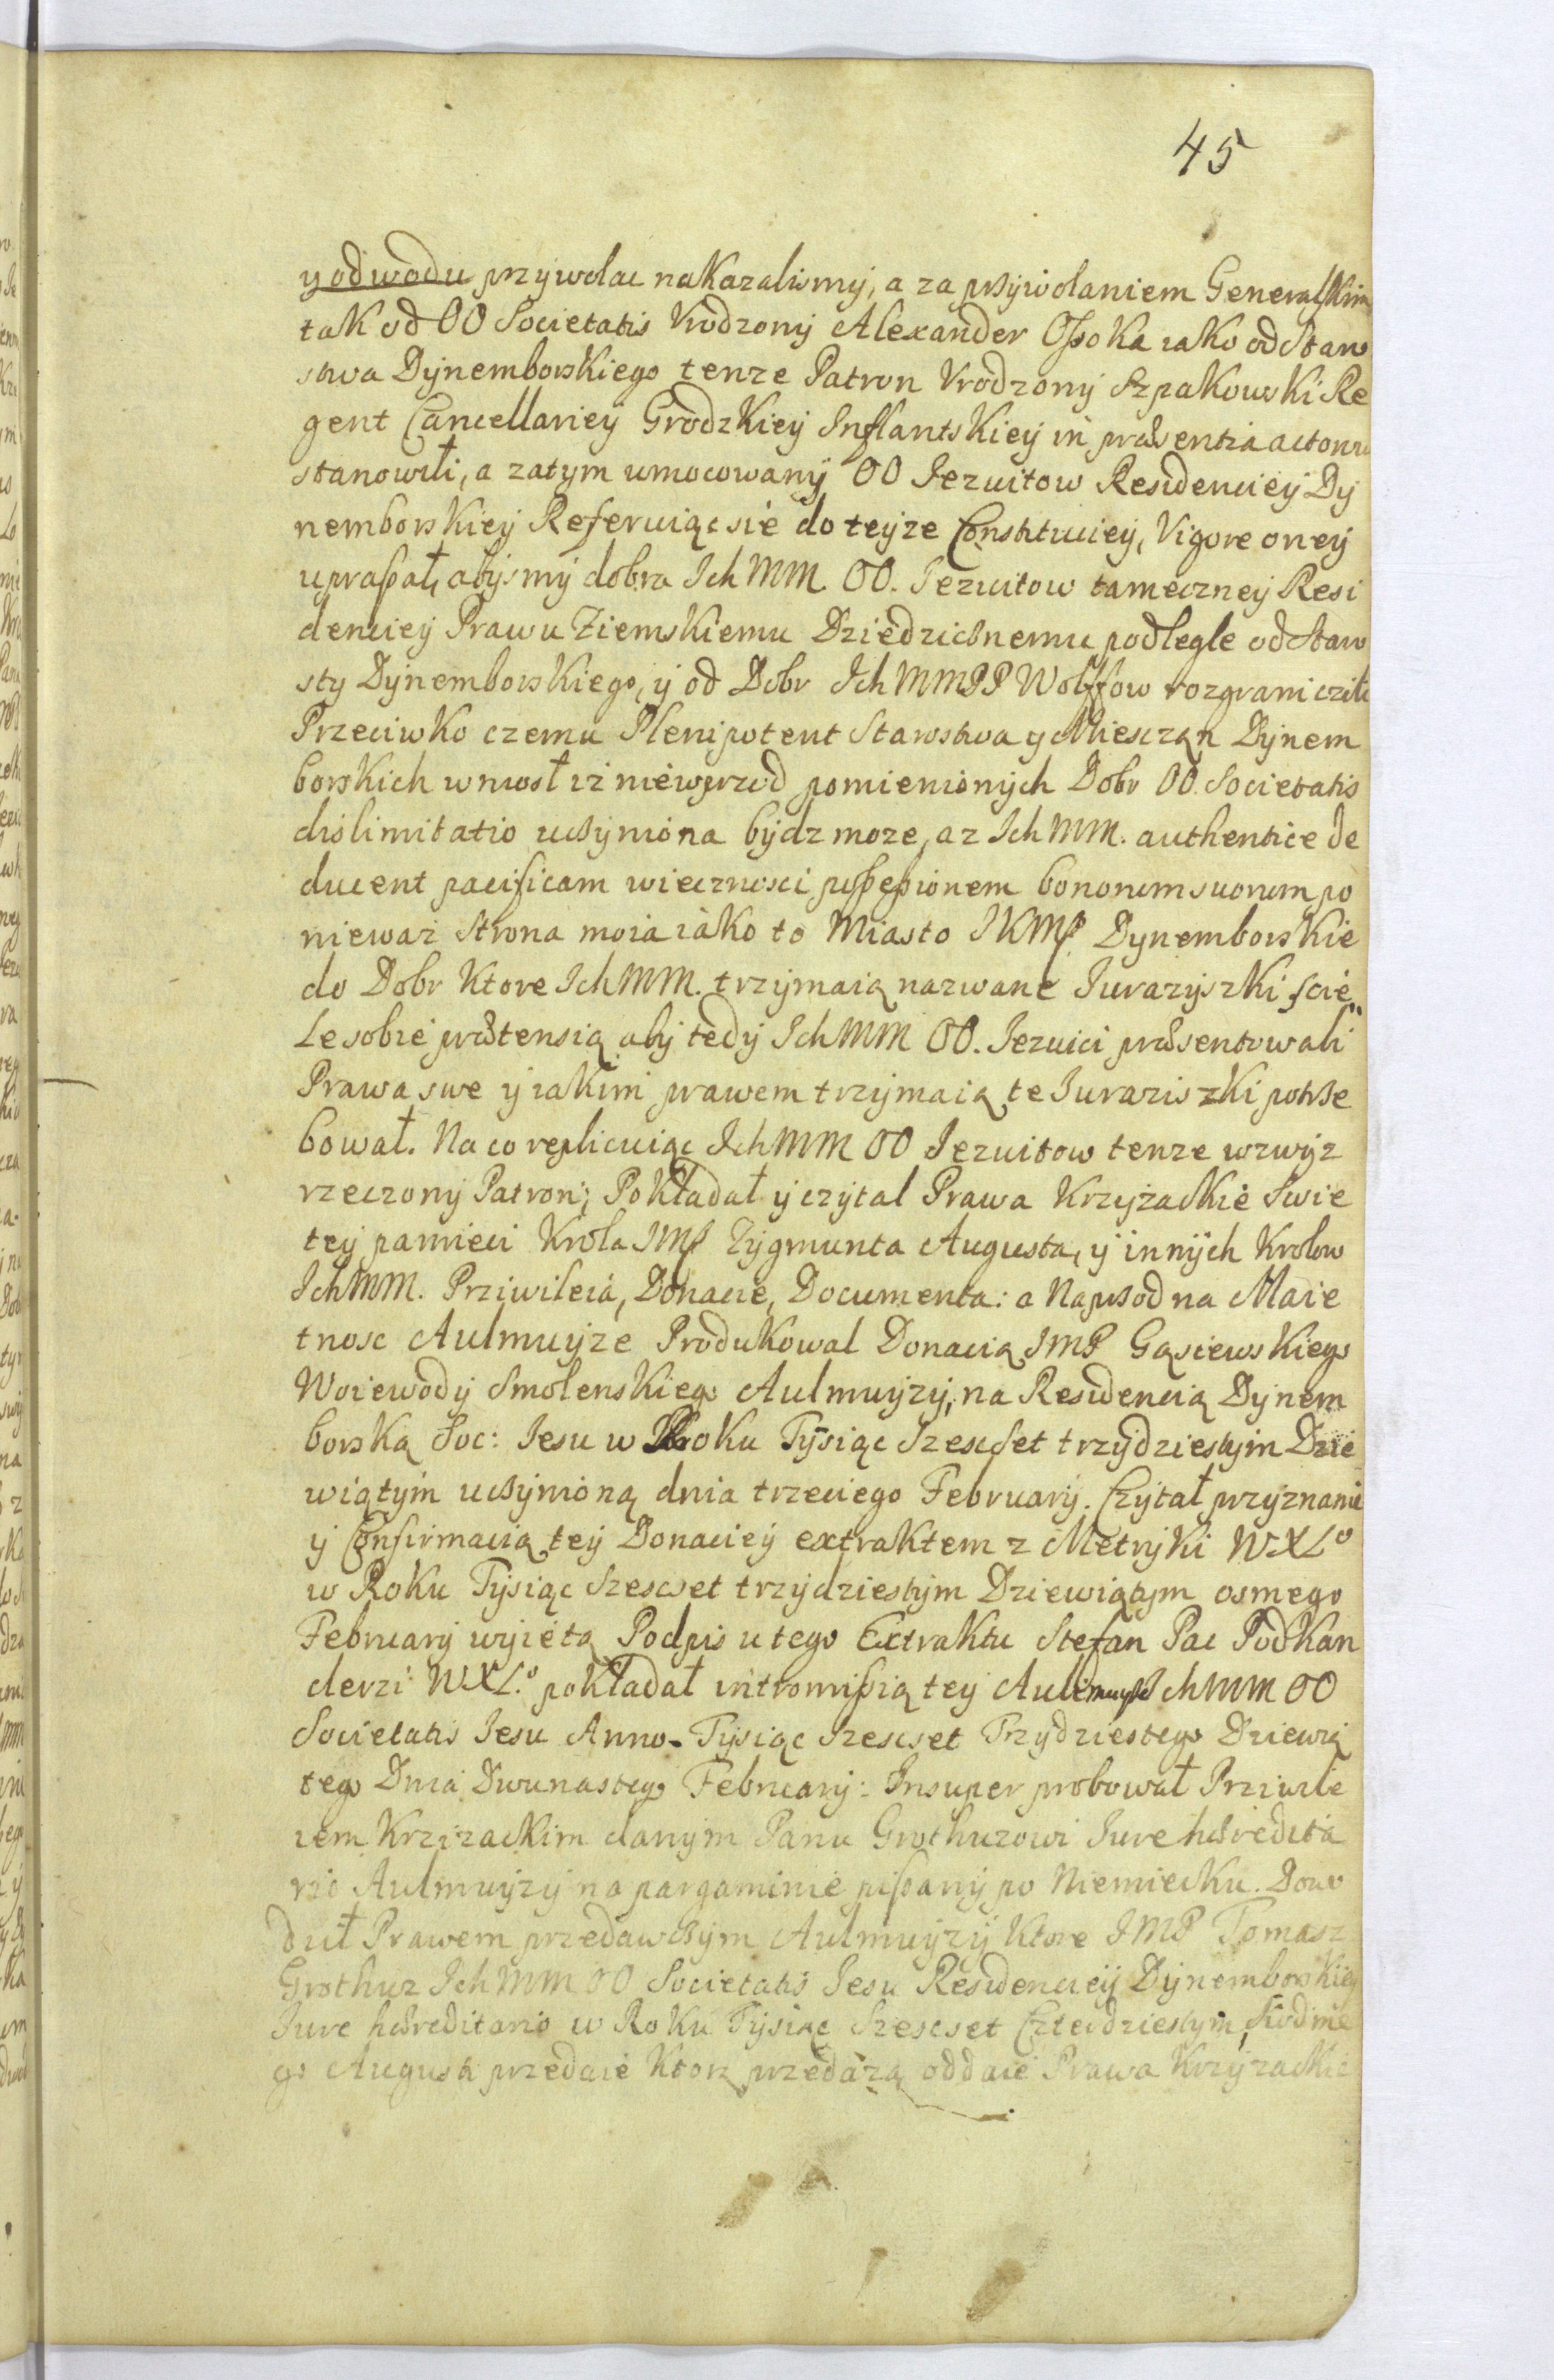 45
y odwodu przywolac nakazalismy, a za przywolaniem Generalskim
tak od OO Societatis Vrodzony Alexander Ossoka iako od Staro
stwa Dynemborskiego tenze Patron Vrodzony Szpakowski Re
gent Cancellariey Grodzkiey Inflantskiey in præsentia actorum
stanowili, a zatym umocowany OO Jezuitow Residenciey Dy
nemborskiey Referuiąc sie do teyze Constituciey, Vigore oney
upraszał, abysmy dobra Ich MM OO. Jezuitow tameczney Resi
denciey Prawu Ziemskiemu Dziedzicznemu podległe od Staro
sty Dynemborskiego, y od Dobr Ich MMPP Wolffow rozgraniczili
Przeciwko czemu Plenipotent Starostwa y Miesczan Dynem
borskich wniosł iż niewprzod pomienionych Dobr OO. Societatis
dislimitatio uczyniona bydz moze, az Ich MM. authentice de
ducent pacificam wiecznosci possessionem bonorum suorum po
niewaz Strona moia iako to Miasto JKMsc Dynemborskie
do Dobr Ktore Ich MM. trzymaią nazwane Jurazyszki scie
le sobie prætensią aby tedy Ich MM OO. Jezuici præsentowali
Prawa swe y iakim prawem trzymaią te Juraziszki potrze
bował. Na co replicuiąc Ich MM OO Jezuitow tenze wzwyz
rzeczony Patron; Pokładał y czytal Prawa Krzyżackie Swie
tey pamieci Krola JMsc Zygmunta Augusta, y innych Krolow
Ich MM. Priwileia, Donacie, Documenta: a Naprzod na Maie
tnosc Aulmuyze Produkowal Donacią JMP Gąsiewskiego
Woiewody Smolenskiego Aulmuyzy, na Residencią Dynem
borską Soc: Jesu w Roku Tysiąc Szescset trzydziestym Dzie
wiątym uczynioną dnia trzeciego February. Czytał przyznanie
y Confirmacią tey Donaciey extraktem z Metryki WXLo
w Roku Tysiąc Szescset trzydziestym Dziewiątym osmego
February wyiętą Podpis u tego Extraktu Stefan Pac Podkan
clerzi WXL.o pokładał intromissią tey Aulemuyze Ich MM OO
Societatis Jesu Anno Tysiąc Szescset Trzydziestego Dziewią
tego Dnia Dwunastego February: Insuper probował Priwile
iem Krzizackim danym Panu Grothuzowi Jure hæredita
rio Aulmuyzy na pargaminie pissany po Niemiecku. Dowo
dził Prawem przedawczym Aulmuyzy Ktore JMP Tomasz
Grothuz Ich MM OO Societatis Jesu Residenciey Dynemborskiey
Jure hæreditario w Roku Tysiąc Szescset Czterdziestym, Siodme
go Augusta przedaie Ktorą przedażą oddaie Prawa Krzyzackie